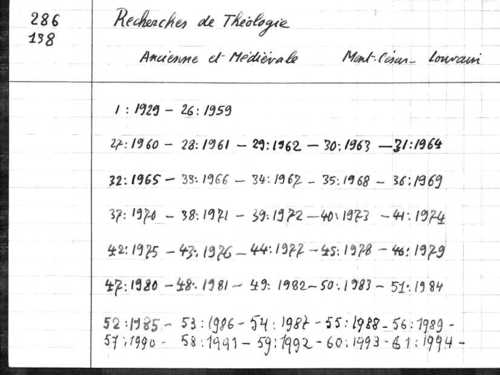 286
138
Recherches de Théologie
Ancienne et Médiévale Mont-César- Louvain
1:1929 - 26:1959
27:1960 - 28:1961 - 29:1962 - 30:1963 - 31:1964
32:1965 - 33:1966 - 34:1967 - 35:1968 - 36:1969
37:1970 - 38:1971 - 39:1972 - 40:1973 - 41:1974
42:1975 - 43:1976 - 44:1977 - 45:1978 - 46:1979
47:1980 - 48:1981 - 49:1982 - 50:1983 - 51:1984
52:1985 - 53:1986 - 54:1987 - 55:1988 - 56:1989 -
57:1990 - 58:1991 - 59:1992 - 60:1993 - 61:1994 -